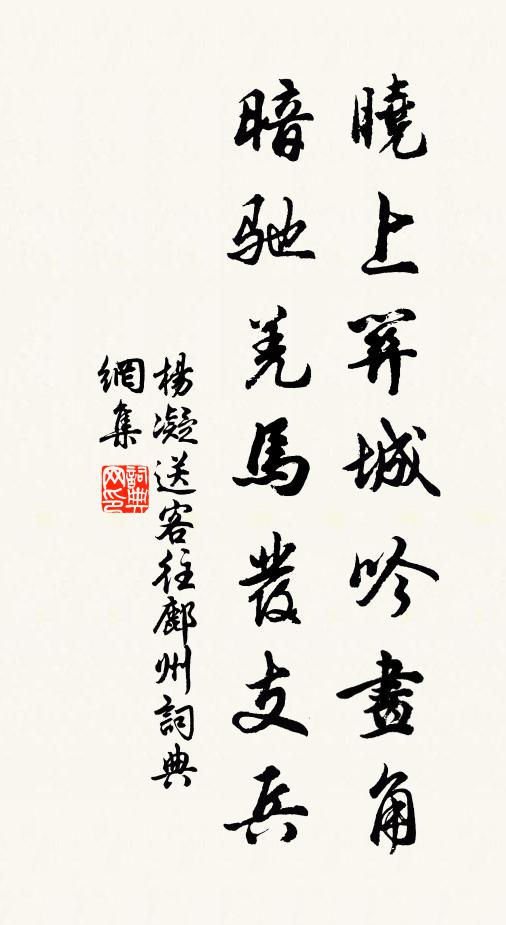 曉上關城吟畫角
暗馳羌馬發支兵
楊凝送客往鄜州詞典
網集
詞典
网印